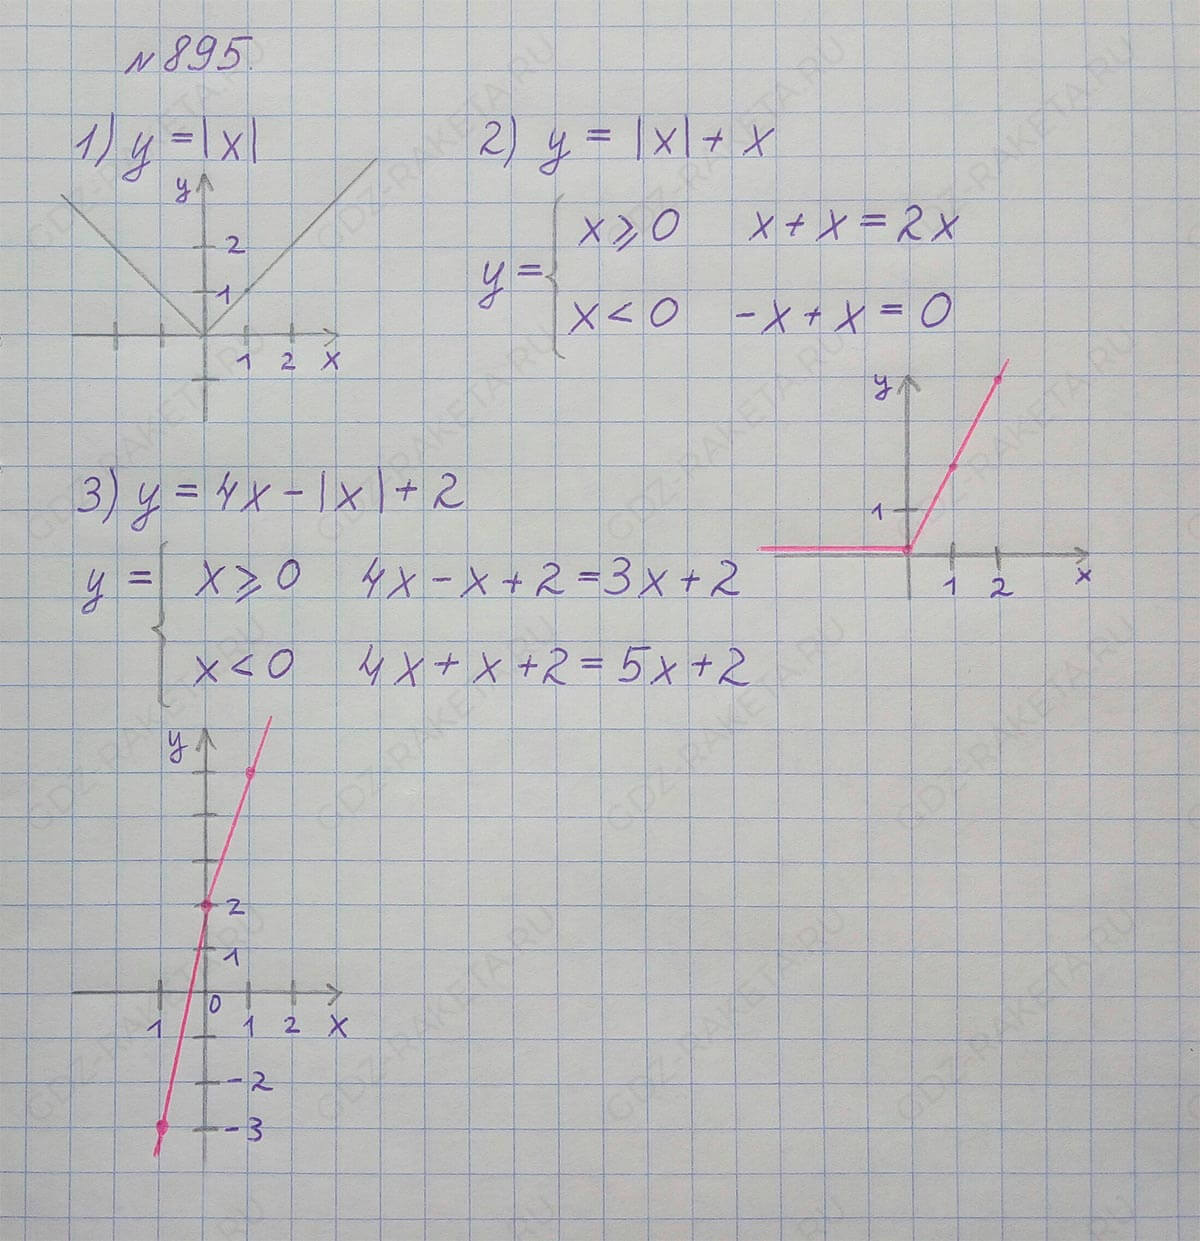 №895.
1) y = |x|
y
2
1
1 2 x
2) y = |x| + x
y = { x ⩾ 0 x + x = 2x
x < 0 -x + x = 0
y
1
1 2 x
3) y = 4x - |x| + 2
y = { x ⩾ 0 4x - x + 2 = 3x + 2
x < 0 4x + x + 2 = 5x + 2
y
2
1
0
1 1 2 x
-2
-3
GDZ-RAKETA.RU